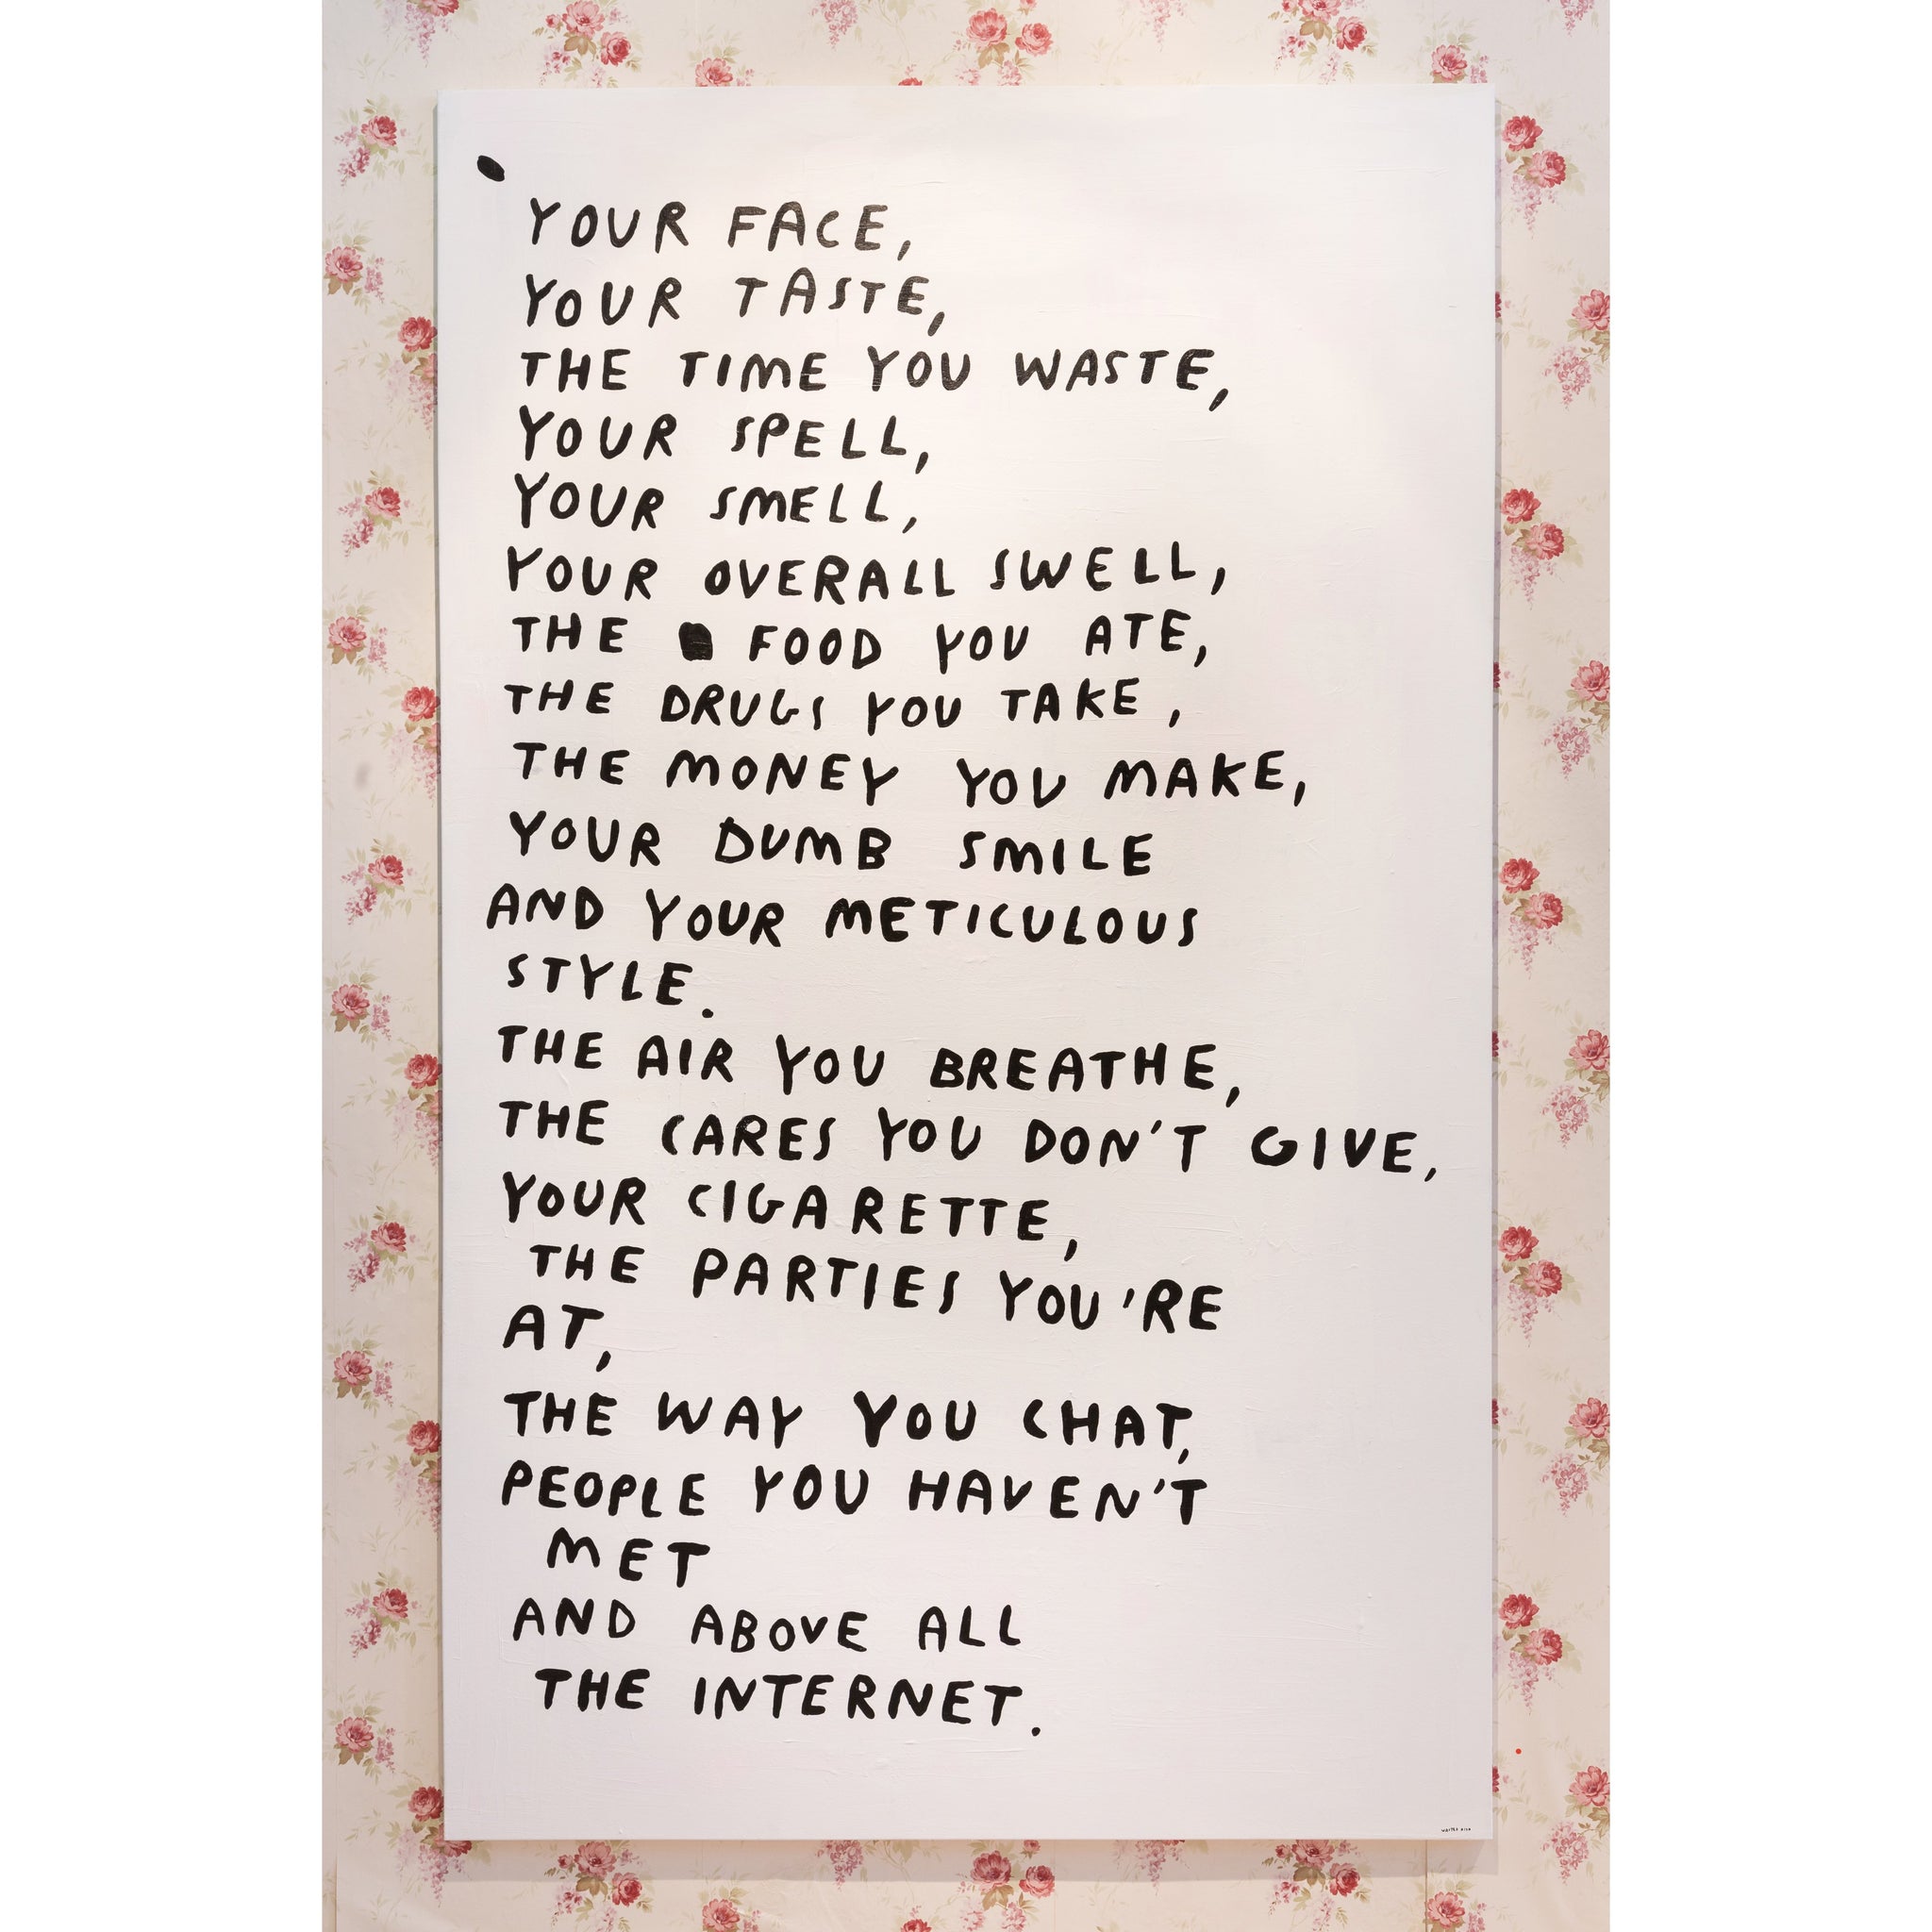 YOUR FACE,
YOUR TASTE,
THE TIME YOU WASTE,
YOUR SPELL,
YOUR SMELL,
YOUR OVERALL SWELL,
THE FOOD YOU ATE,
THE DRUGS YOU TAKE,
THE MONEY YOU MAKE,
YOUR DUMB SMILE
AND YOUR METICULOUS
STYLE.
THE AIR YOU BREATHE,
THE CARES YOU DON'T GIVE,
YOUR CIGARETTE,
THE PARTIES YOU'RE
AT,
THE WAY YOU CHAT,
PEOPLE YOU HAVEN'T
MET
AND ABOVE ALL
THE INTERNET.